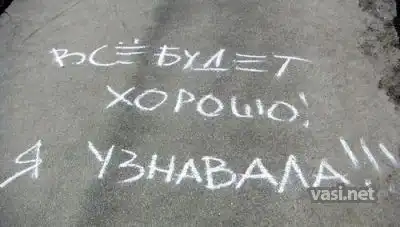 ВСЁ БУДЕТ
ХОРОШО!
Я УЗНАВАЛА!!!
vasi.net